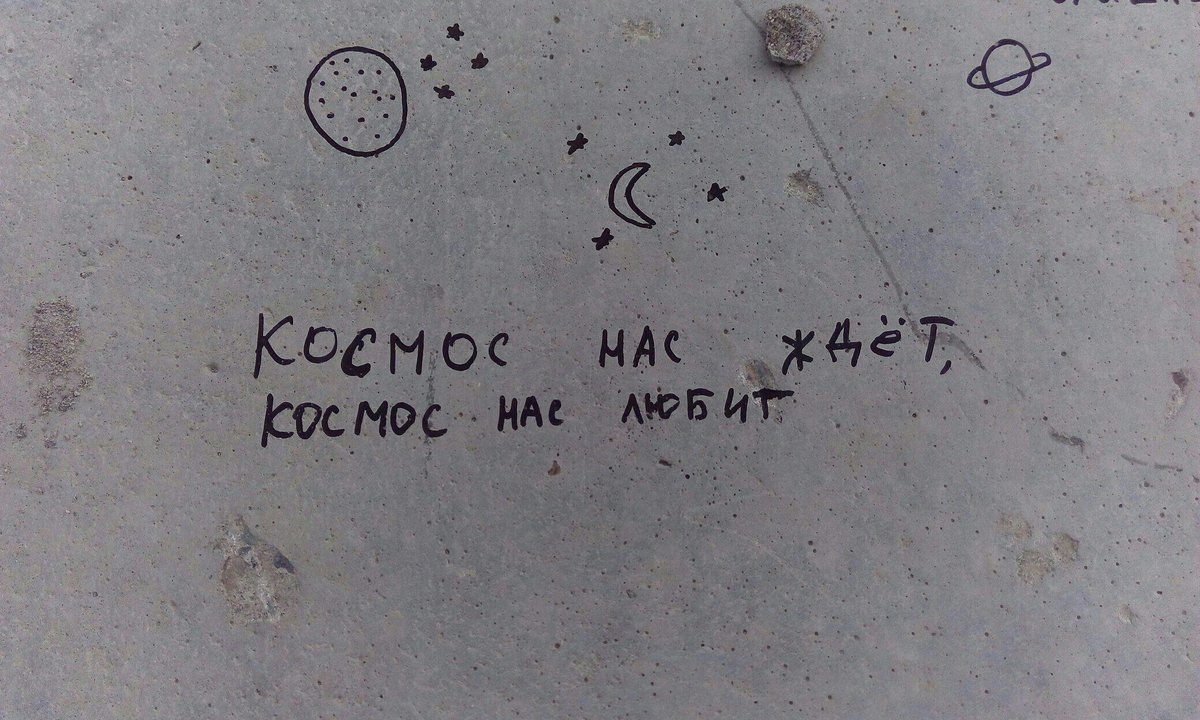 Космос нас ждёт,
космос нас любит